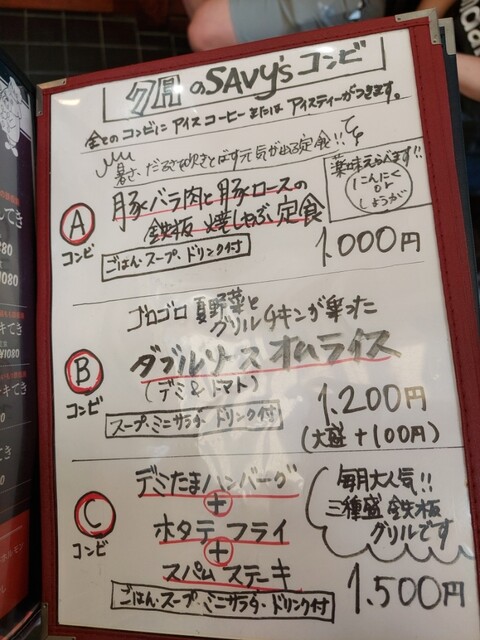 夕凪のSAVy'sコンビ
全てのコンビにアイスコーヒーまたはアイスティーがつきます。
暑さ、だるさ吹きとばす元気が出る定食!!
A
コンビ
豚バラ肉と豚ロースの
鉄板 焼しゃぶ定食
薬味えらべます!!
にんにく
or
しょうが
ごはん・スープ・ドリンク付
1.000円
ゴロゴロ 夏野菜と
グリルチキンが乗った
B
コンビ
ダブルソースオムライス
(デミ&トマト)
スープ・ミニサラダ・ドリンク付
1.200円
(大盛+100円)
C
コンビ
デミたまハンバーグ
+
ホタテフライ
+
スパムステーキ
毎月大人気!!
三種盛 鉄板
グリルです
ごはん・スープ・ミニサラダ・ドリンク付
1.500円